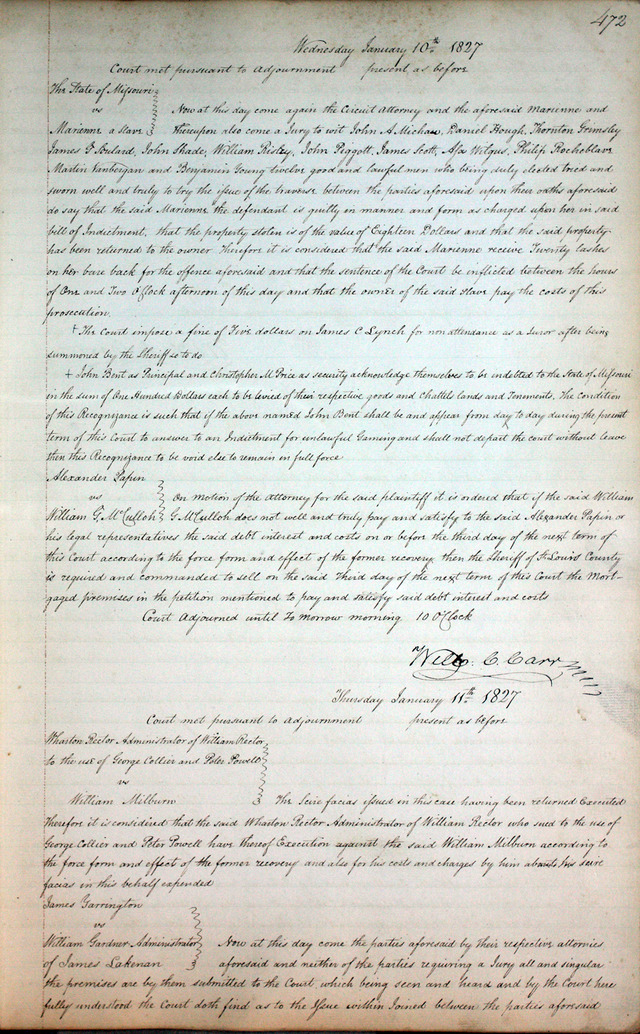 472
Wednesday January 10th 1827
Court met pursuant to adjournment present as before
The State of Missouri
vs Now at this day come again the Circuit Attorney and the aforesaid Marienne and
Marienne a slave thereupon also come a Jury to wit John A. Michau, Daniel Hough, Thornton Grimsley
James G Soulard, John Shade, William Risley, John Piggott, James Scott, Asa Wilgus, Philip Rocheblave
Martin Vanbergan and Benjamin Young twelve good and lawful men who being duly elected tried and
sworn well and truly to try the issue of the traverse between the parties aforesaid upon their oaths aforesaid
do say that the said Marienne the defendant is guilty in manner and form as charged upon her in said
bill of Indictment, that the property stolen is of the value of Eighteen Dollars and that the said property
has been returned to the owner Therefore it is considered that the said Marienne receive Twenty lashes
on her bare back for the offence aforesaid and that the sentence of the Court be inflicted between the hours
of One and Two O'Clock afternoon of this day and that the owner of the said slave pay the costs of this
prosecution.
+ The Court impose a fine of Five dollars on James C Lynch for non attendance as a Juror after being
summoned by the Sheriff so to do
+ John Bent as Principal and Christopher M Price as security acknowledge themselves to be indebted to the State of Missouri
in the sum of One Hundred Dollars each to be levied of their respective goods and Chattels lands and Tenements. The condition
of this Recognizance is such if if the above named John Bent shall be and appear from day to day during the present
term of this Court to answer to an Indictment for unlawful Gaming and shall not depart the court without leave
then this Recognizance to be void else to remain in full force
Alexander Papin
vs On motion of the attorney for the said plaintiff it is ordered that if the said William
William G. McCulloh G McCulloh does not well and truly pay and satisfy to the said Alexander Papin or
his legal representatives the said debt interest and costs on or before the third day of the next term of
this Court according to the force form and effect of the former recovery, then the Sheriff of St Louis County
is required and commanded to sell on the said Third day of the next term of this Court the Mort-
gaged premises in the petition mentioned to pay and satisfy said debt interest and costs
Court Adjourned until To morrow morning 10 O'Clock
Will. C. Carr
Thursday January 11th 1827
Court met pursuant to adjournment present as before
Wharton Rector Administrator of William Rector
to the use of George Collier and Peter Powell
vs
William Milburn The Scire facias issued in this case having been returned Executed
Therefore it is considered that the said Wharton Rector Administrator of William Rector who sued to the use of
George Collier and Peter Powell have thereof Execution against the said William Milburn according to
the force form and effect of the former recovery and also for his costs and charges by him about his scire
facias in this behalf expended
James Garrington
vs
William Gardner Administrator Now at this day come the parties aforesaid by their respective attornies
of James Lakenan aforesaid and neither of the parties requiring a Jury all and singular
the premises are by them submitted to the Court which being seen and heard and by the Court here
fully understood the Court doth find as to the Issue within Joined between the parties aforesaid